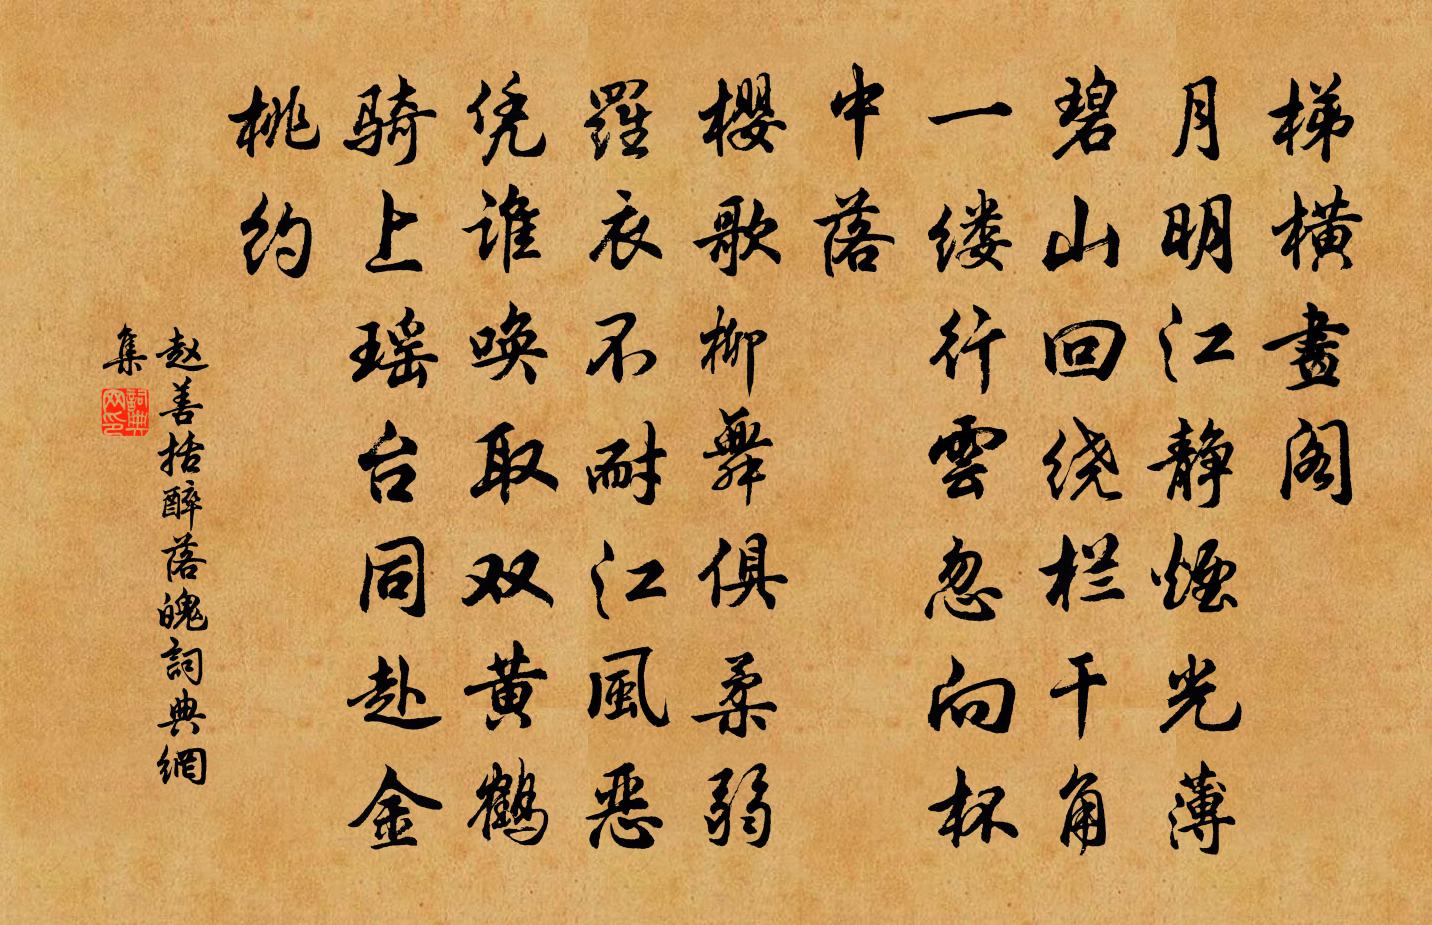 梯橫畫阁
月明江静煙光薄
碧山回绕栏干角
一缕行雲忽向杯
中落
櫻歌柳舞俱柔弱
羅衣不耐江風恶
凭谁唤取双黄鹤
骑上瑶台同赴金
桃约
赵善括醉落魄詞典網
集
詞典
网印